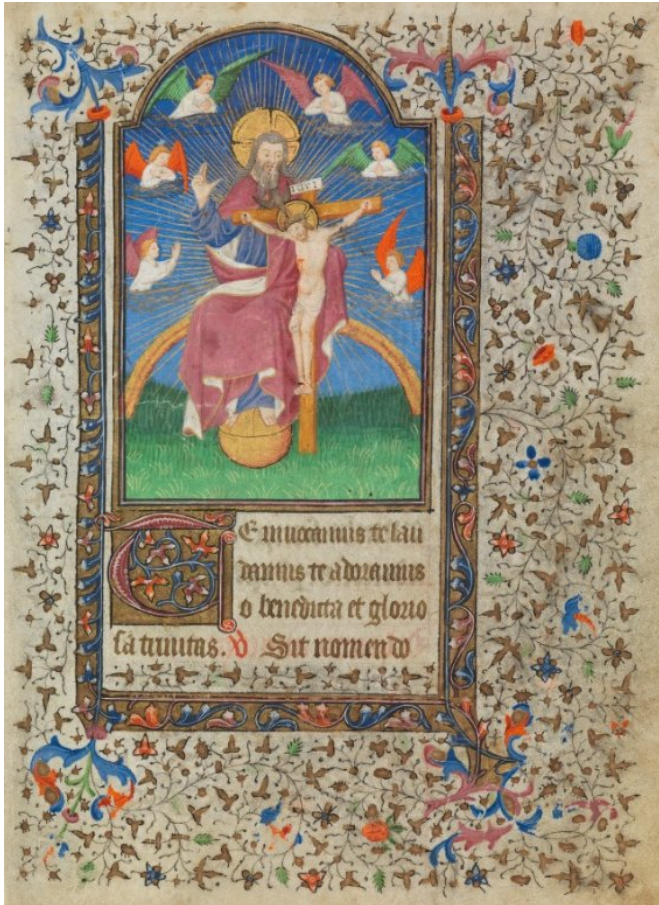 INRI
TE inuocamus te lau
damus te adoramus
o benedicta et glorio
sa trinitas. V Sit nomen do